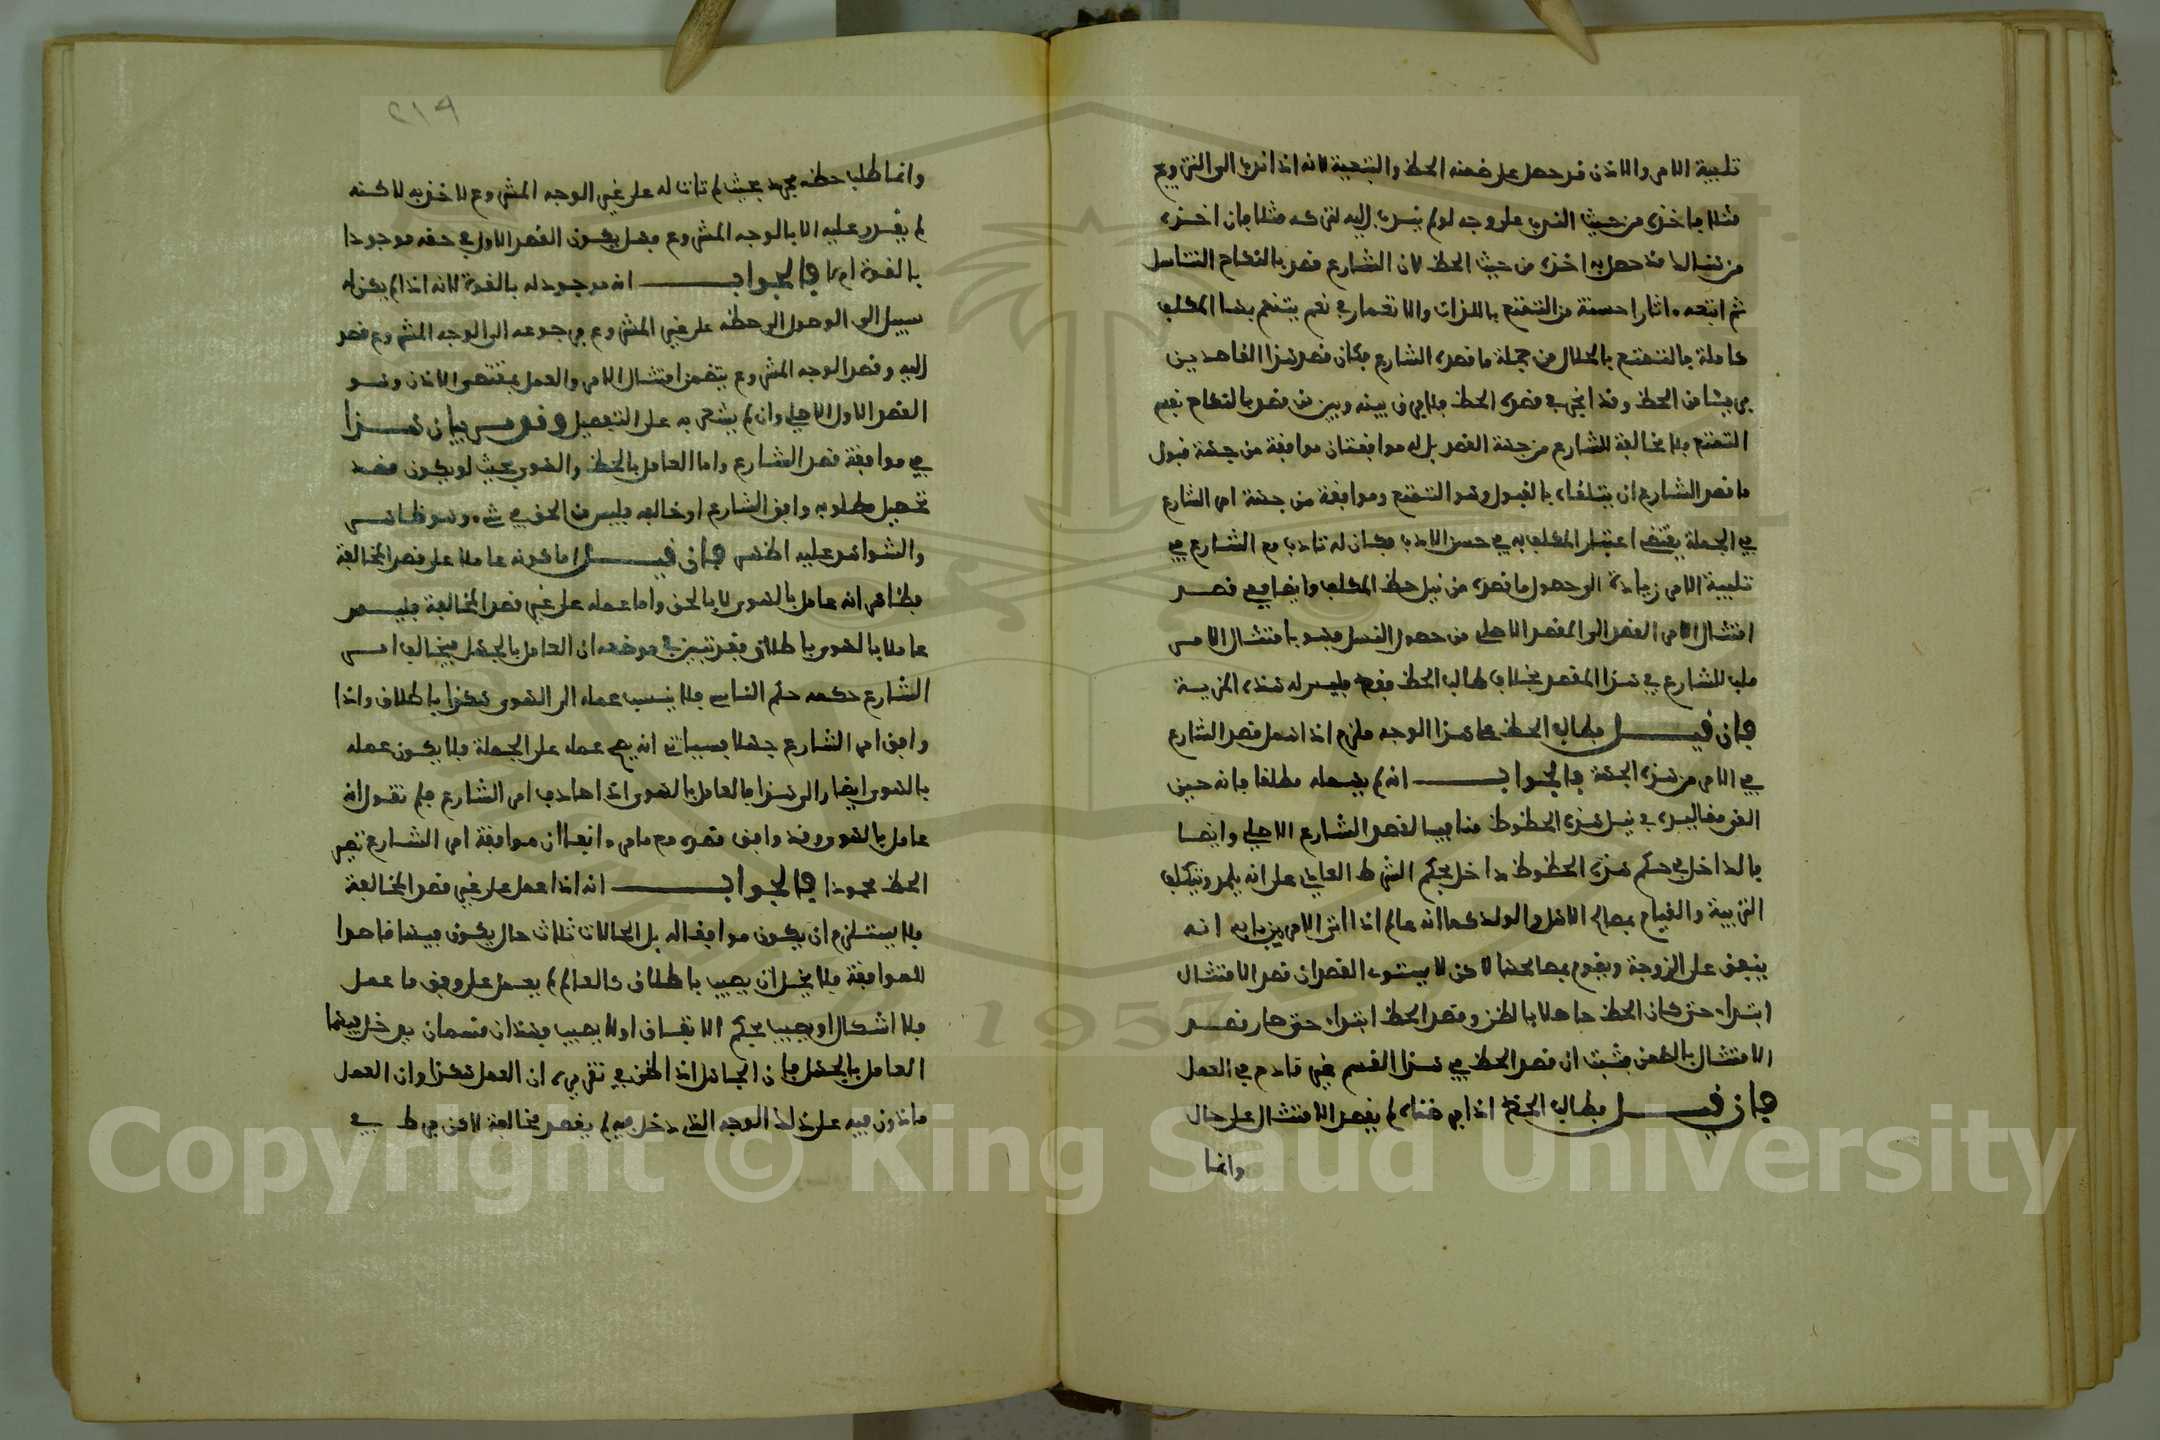 تلبية الامر والاذن قد حصل على ضمنه الحظ والتبعية لانه اذا ندب الى التزويج
مثلا فاخذه من حيث الندب على وجه لو لم يندب اليه لتركه مثلا فان اخذه
من هنالك قد حصل به اخذه من حيث الحظ لان الشارع قصد بالنكاح التناسل
ثم اتبعه ءاثارا حسنة من التمتع باللذات والانغمار في نعم يتنعم بها المكلف
كاملة فالتمتع بالحلال من جملة ما قصده الشارع فكان قصد هذا القاصد
من الحظ وقد انجر في قصده الحظ فلا فرق بينه وبين من قصد بالنكاح نفس
التمتع فلا مخالفة للشارع من جهة القصد بل له موافقتان موافقة من جهة قبول
ما قصد الشارع ان يتلقاه بالقبول وهو التمتع وموافقة من جهة امر الشارع
في الجملة يقتضي اعتبار المكلف به في حسن الادب فكان له تادب مع الشارع في
تلبية الامر زيادة الى حصول ما قصده من نيل حظ المكلف وايضا ففي قصد
امتثال الامر القصد الى المقصد الاصلي من حصول النسل فهو بامتثال الامر
ملب للشارع في هذا المقصد بخلاف طالب الحظ فقط فليس له هذه المزية
فان قيل فطالب الحظ في هذا الوجه ملوم اذ اهمل قصد الشارع
في الامر من هذه الجهة فالجواب انه لم يهمله مطلقا فانه حين
القى مقاليده في نيل هذه الحظوظ منافيا لقصد الشارع الاصلي وايضا
فالداخل في حكم هذه الحظوظ داخل بحكم الشرط العادي على انه يلد ويتكلف
التربية والقيام بمصالح الاهل والولد كما انه عالم اذا اتى الامر من بابه انه
ينفق على الزوجة ويقوم بمصالحها لاكن لا يستوي القصدان قصد الامتثال
ابتداء حتى كان الحظ حاصلا بالضمن وقصد الحظ ابتداء حتى صار قصد
الامتثال بالضمن فثبت ان قصد الحظ في هذا القسم غير قادح في العمل
فان قيل فطالب الحظ اذا فرضناه لم يقصد الامتثال على حال
وانما
٢١٩
وانما طلب حظه مجردا بحيث لو تاتى له على غير الوجه المشروع لاخذ به لاكنه
لم يقدر عليه الا بالوجه المشروع فهل يكون القصد الاول في حقه موجودا
بالقوة ام لا فالجواب انه موجود له بالقوة لانه اذا لم يكن له
سبيل الى الوصول الى حظه على غير المشروع فرجوعه الى الوجه المشروع قصد
اليه وقصد الوجه المشروع يتضمن امتثال الامر والعمل بمقتضى الاذن وهو
القصد الاول الاصلي وان لم يشعر به على التفصيل وقد مر بيان هذا
في موافقة قصد الشارع واما العامل بالحظ والهوى بحيث لو يكون قصد
تحصيل مطلوبه وافق الشارع او خالفه فليس من الحق في شيء وهو ظاهر
والشواهد عليه اظهر فان قيل اما كونه عاملا على قصد المخالفة
فظاهر انه عامل بالهوى لا بالحق واما عمله على غير قصد المخالفة فليس
عاملا بالهوى باطلاق فقد تبين في موضعه ان العامل بالجهل فيخالف امر
الشارع حكمه حكم الناسي فلا ينسب عمله الى الهوى هكذا باطلاق واذا
وافق امر الشارع جهلا فسياتي انه يصح عمله على الجملة فلا يكون عمله
بالهوى ايضا والى هذا فالعامل بالهوى اذا صادف امر الشارع فلم تقول انه
عامل بالهوى وقد وافق قصده مع ما مر ءانفا ان موافقة امر الشارع تصير
الحظ محمودا فالجواب انه اذا عمل على غير قصد المخالفة
فلا يستلزم ان يكون موافقا له بل الحالات ثلاث حال يكون فيها قاصدا
للموافقة فلا يخلو ان يصيب باطلاق كالعالم يعمل على وفق ما عمل
فلا اشكال او يصيب بحكم الاتفاق او لا يصيب فهذان قسمان يدخل فيهما
العامل بالجهل فان الجاهل اذا ظن في تقديره ان العمل هكذا وان العمل
ماذون فيه على ذلك الوجه الذي دخل فيه لم يقصد مخالفة لاكن فرط في
Copyright © King Saud University
1957